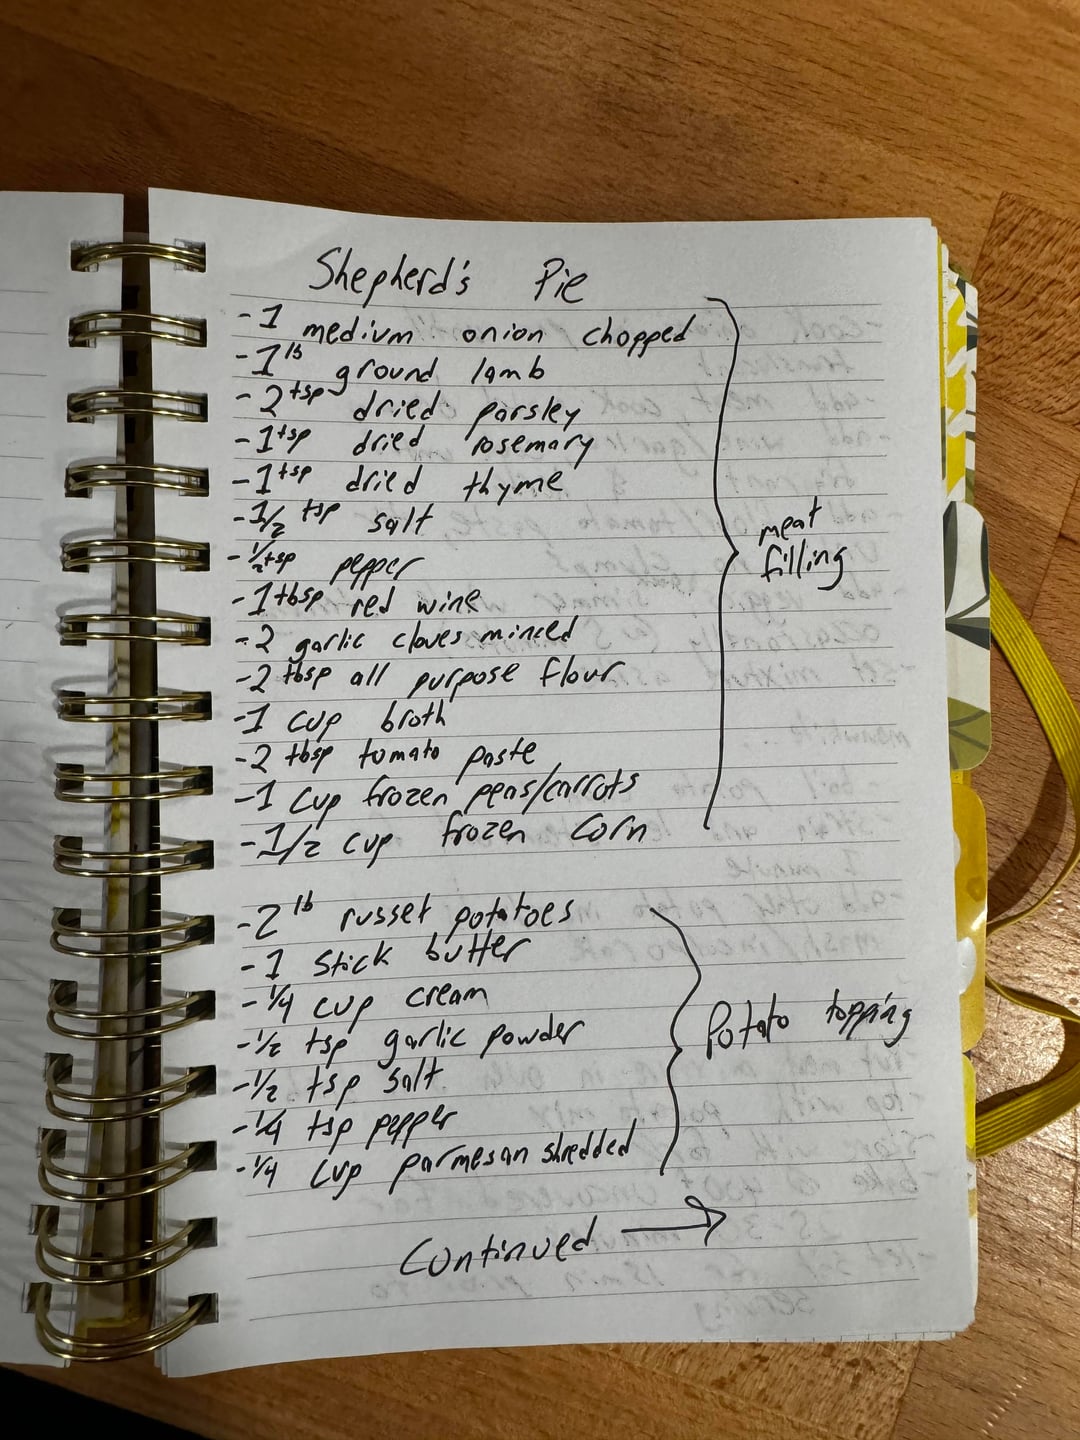 Shepherd's Pie
-1 medium onion chopped
-1 lb ground lamb
-2 tsp dried parsley
-1 tsp dried rosemary
-1 tsp dried thyme
-1/2 tsp salt
-1/2 tsp pepper
-1 tbsp red wine
-2 garlic cloves minced
-2 tbsp all purpose flour
-1 cup broth
-2 tbsp tomato paste
-1 cup frozen peas/carrots
-1/2 cup frozen corn
meat
filling
-2 lb russet potatoes
-1 stick butter
-1/4 cup cream
-1/2 tsp garlic powder
-1/2 tsp salt
-1/4 tsp pepper
-1/4 cup parmesan shredded
Potato topping
Continued →